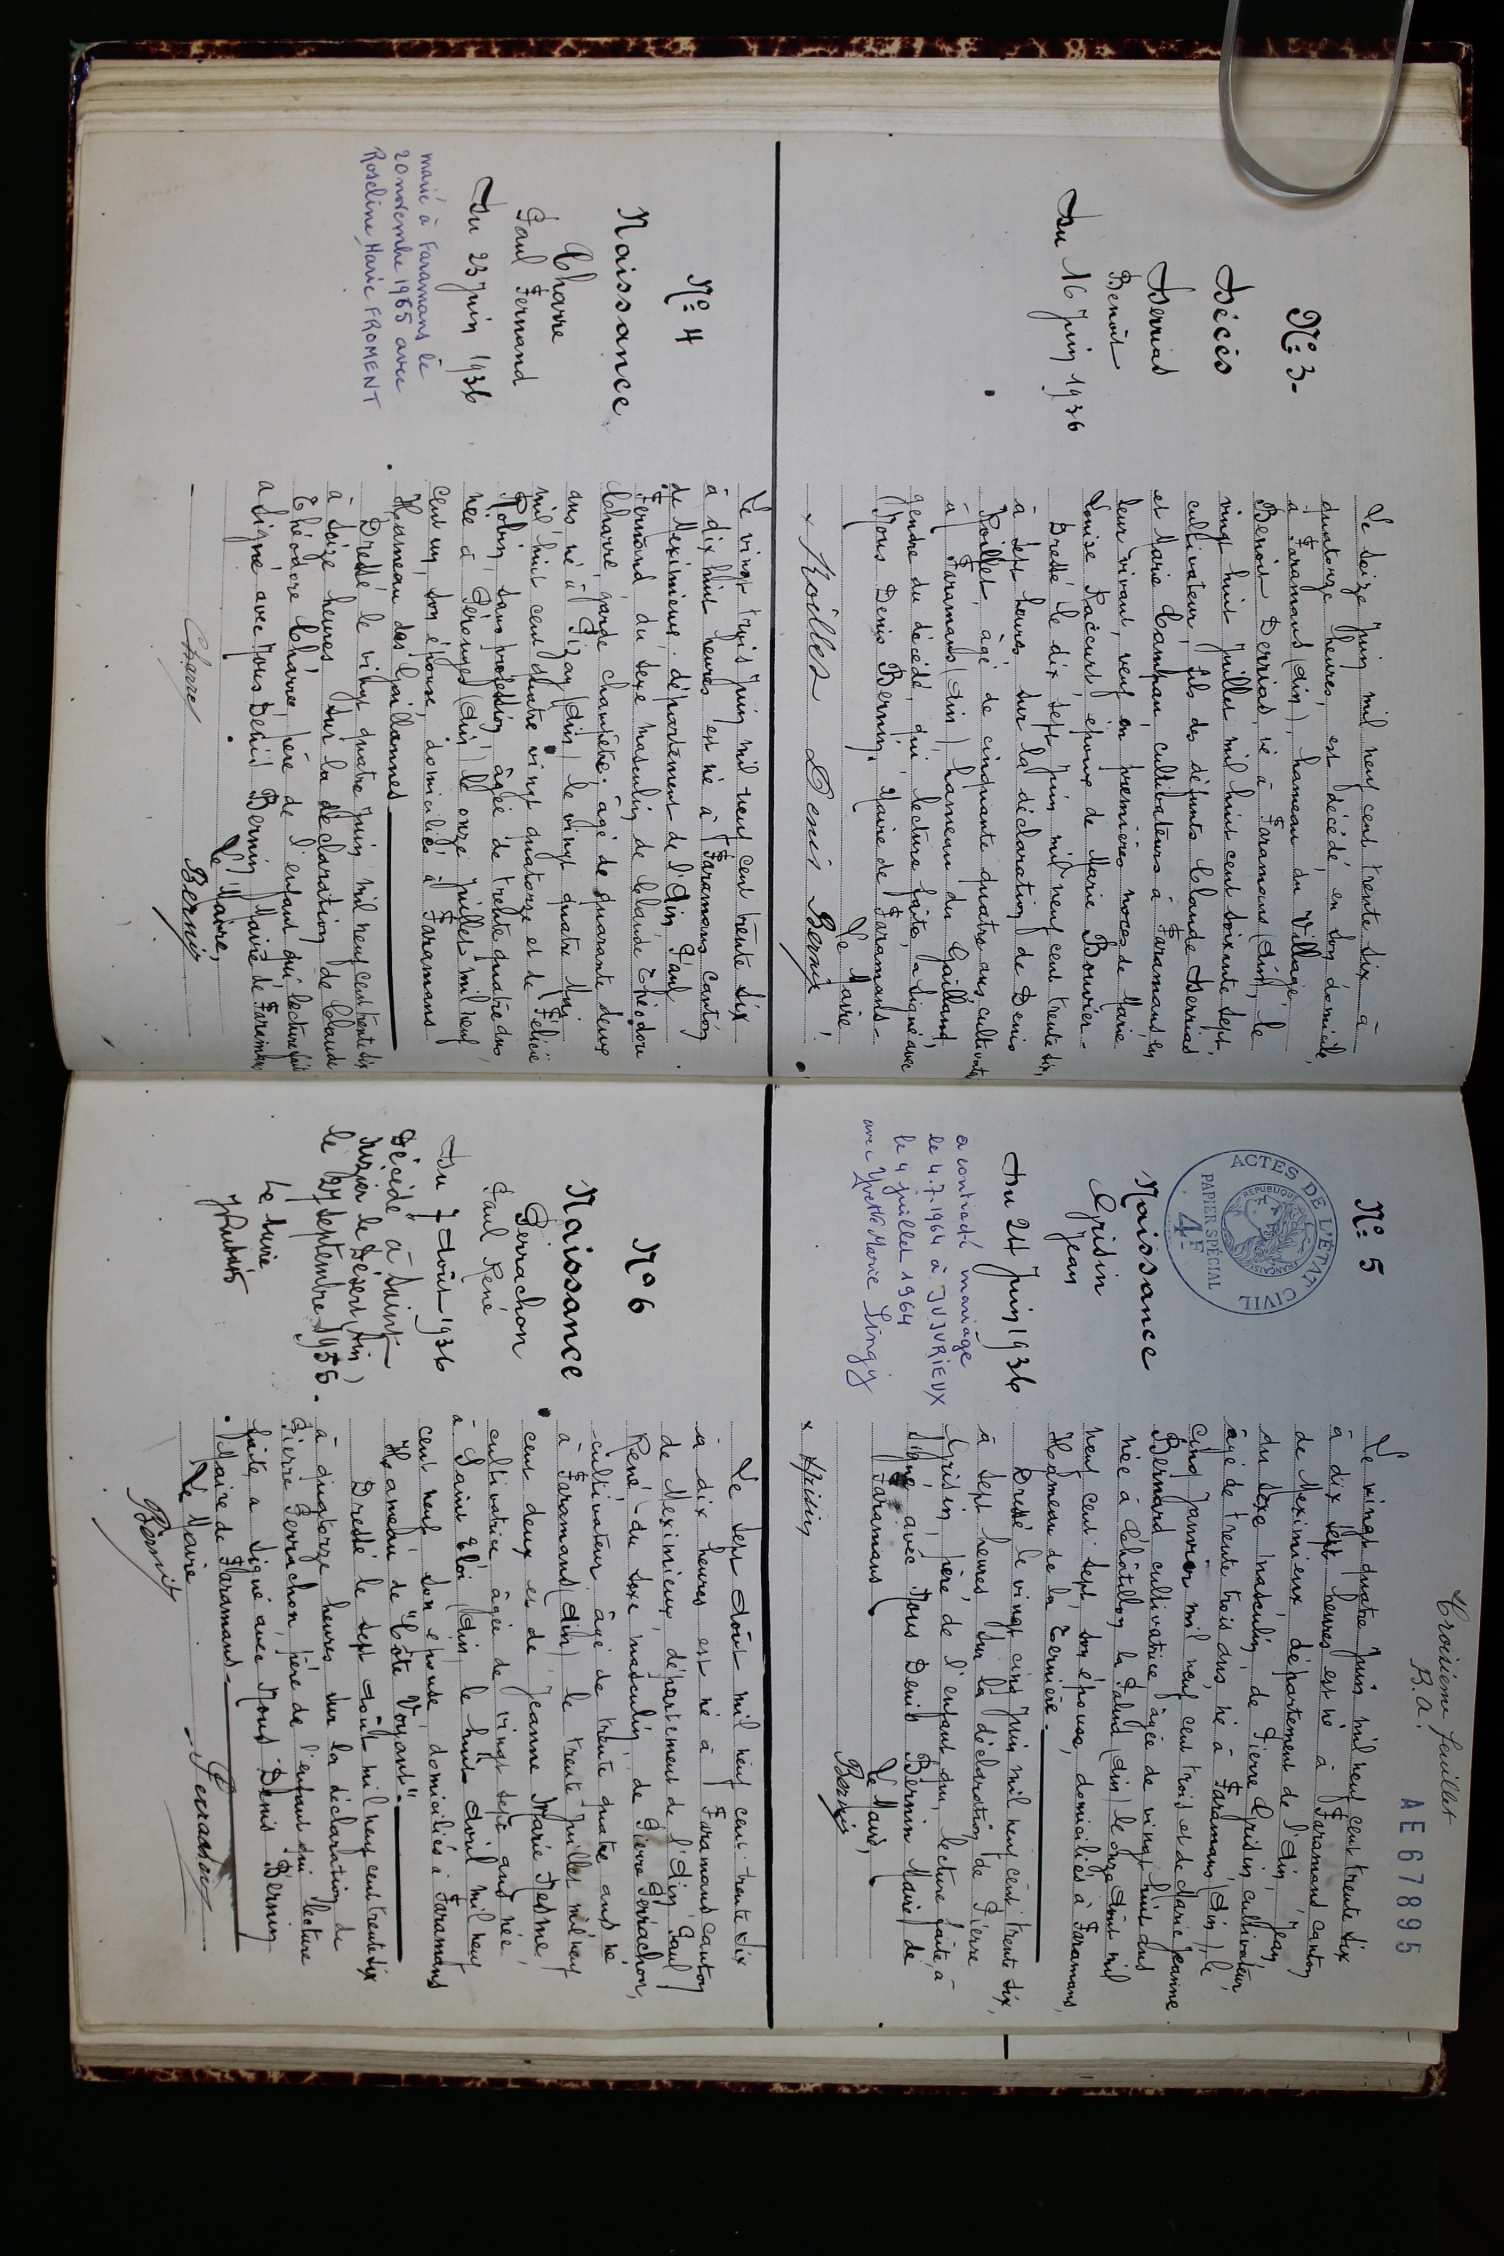 N° 3-
Décès
Derrias
Benoît
Du 16 Juin 1936
Le seize Juin mil neuf cent trente six à
quatorze heures, est décédé, en son domicile,
à Faramans (Ain), hameau du Village,
Benoît Derrias, né à Faramans (Ain), le
vingt huit Juillet mil huit cent soixante sept,
cultivateur, fils des défunts Claude Derrias
et Marie Campan, cultivateurs à Faramans, en
leur vivant, veuf en premières noces de Marie
Louise Racurt, époux de Marie Bouvier-
Dressé le dix sept Juin mil neuf cent trente six,
à sept heures sur la déclaration de Denis
Roillet, âgé de cinquante quatre ans, cultivateur
à Faramans (Ain) hameau du Gailland,
gendre du décédé, qui, lecture faite, a signé avec
Nous Denis Bernin, Maire de Faramans-
Le Maire
x Roillet Denis Bernin
N° 4
Naissance
Charre
Paul Fernand
Du 23 Juin 1936
marié à Faramans le
20 novembre 1965 avec
Roseline Marie FROMENT
Le vingt trois Juin mil neuf cent trente six
à dix huit heures est né à Faramans canton
de Meximieux, département de l'Ain, Paul
Fernand, du sexe masculin, de Claude Théodore
Charre, garde champêtre, âgé de quarante deux
ans né à Pizay (Ain) le vingt quatre Mai
mil huit cent quatre vingt quatorze et de Félicie
Robin, sans profession, âgée de trente quatre ans,
née à Pérouges (Ain) le onze Juillet mil neuf
cent un, son épouse, domiciliés à Faramans
Hameau des Gaillannes
Dressé le vingt quatre Juin mil neuf cent trente six
à seize heures sur la déclaration de Claude
Théodore Charre, père de l'enfant qui lecture faite
a signé avec Nous Denis Bernin Maire de Faramans
Le Maire,
Charre Bernin
Troisième feuillet
B.a.
AE67895
N° 5
ACTES DE L'ÉTAT CIVIL
REPUBLIQUE FRANÇAISE
PAPIER SPÉCIAL
4F
Naissance
Grisin
Jean
Du 24 Juin 1936
a contracté mariage
le 4.7.1964 à JUJURIEUX
le 4 juillet 1964
avec Yvette Marie Lingy
Le vingt quatre Juin mil neuf cent trente six
à dix sept heures est né à Faramans canton
de Meximieux département de l'Ain, Jean,
du sexe masculin, de Pierre Grisin, cultivateur,
âgé de trente trois ans, né à Faramans (Ain), le
cinq Janvier mil neuf cent trois et de Marie Jeanne
Bernard cultivatrice âgée de vingt huit ans
née à Châtillon la Palud (Ain) le onze Août mil
neuf cent sept, son épouse, domiciliés à Faramans,
Hameau de la Ternière-
Dressé le vingt cinq Juin mil neuf cent trente six,
à sept heures, sur la déclaration de Pierre
Grisin, père de l'enfant qui, lecture faite, a
signé avec Nous Denis Bernin Maire de
Faramans
Le Maire,
x Grisin Bernin
N° 6
Naissance
Perrachon
Paul René
Du 7 Août 1936
Décédé à Saint
Nizier le Désert (Ain)
le 27 septembre 1955.
Le Maire
Le sept Août mil neuf cent trente six
à dix heures est né à Faramans canton
de Meximieux, département de l'Ain, Paul
René - du sexe masculin, de Pierre Perrachon,
cultivateur, âgé de trente quatre ans né
à Faramans (Ain) le trente Juillet mil neuf
cent deux et de Jeanne Marie Mesme,
cultivatrice âgée de vingt sept ans née
à Saint Eloi (Ain) le huit Avril mil neuf
cent neuf son épouse, domiciliés à Faramans
Hameau de "Côte Voyant".
Dressé le sept Août mil neuf cent trente six
à quatorze heures sur la déclaration de
Pierre Perrachon, père de l'enfant qui lecture
faite, a signé avec Nous Denis Bernin
Maire de Faramans-
Le Maire
Bernin Perrachon